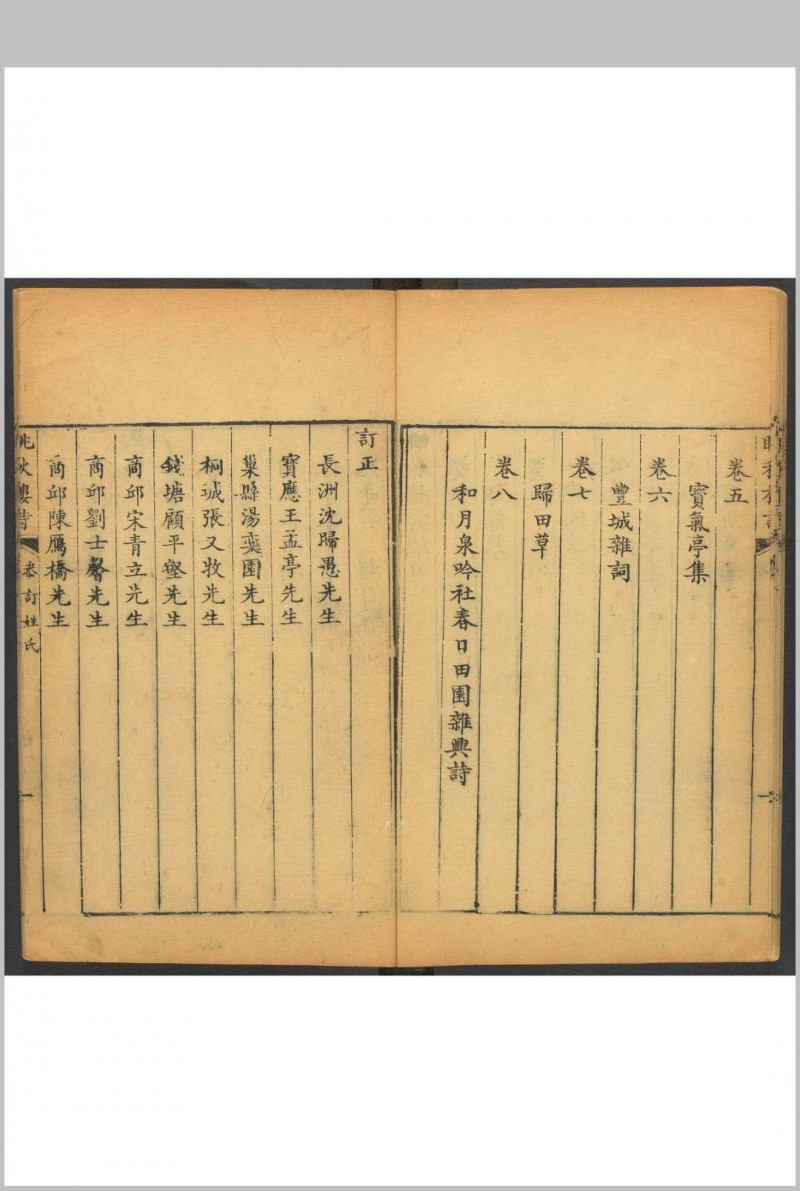 卷五
寶氣亭集
卷六
豐城雜詞
卷七
歸田草
卷八
和月泉吟社春日田園雜興詩
一
訂正
長洲沈歸愚先生
寶應王孟亭先生
巢縣湯奕園先生
桐城張又牧先生
錢塘顧平壑先生
商邱宋青立先生
商邱劉士馨先生
商邱陳鴈橋先生
眺秋樓詩
叅訂姓氏
一